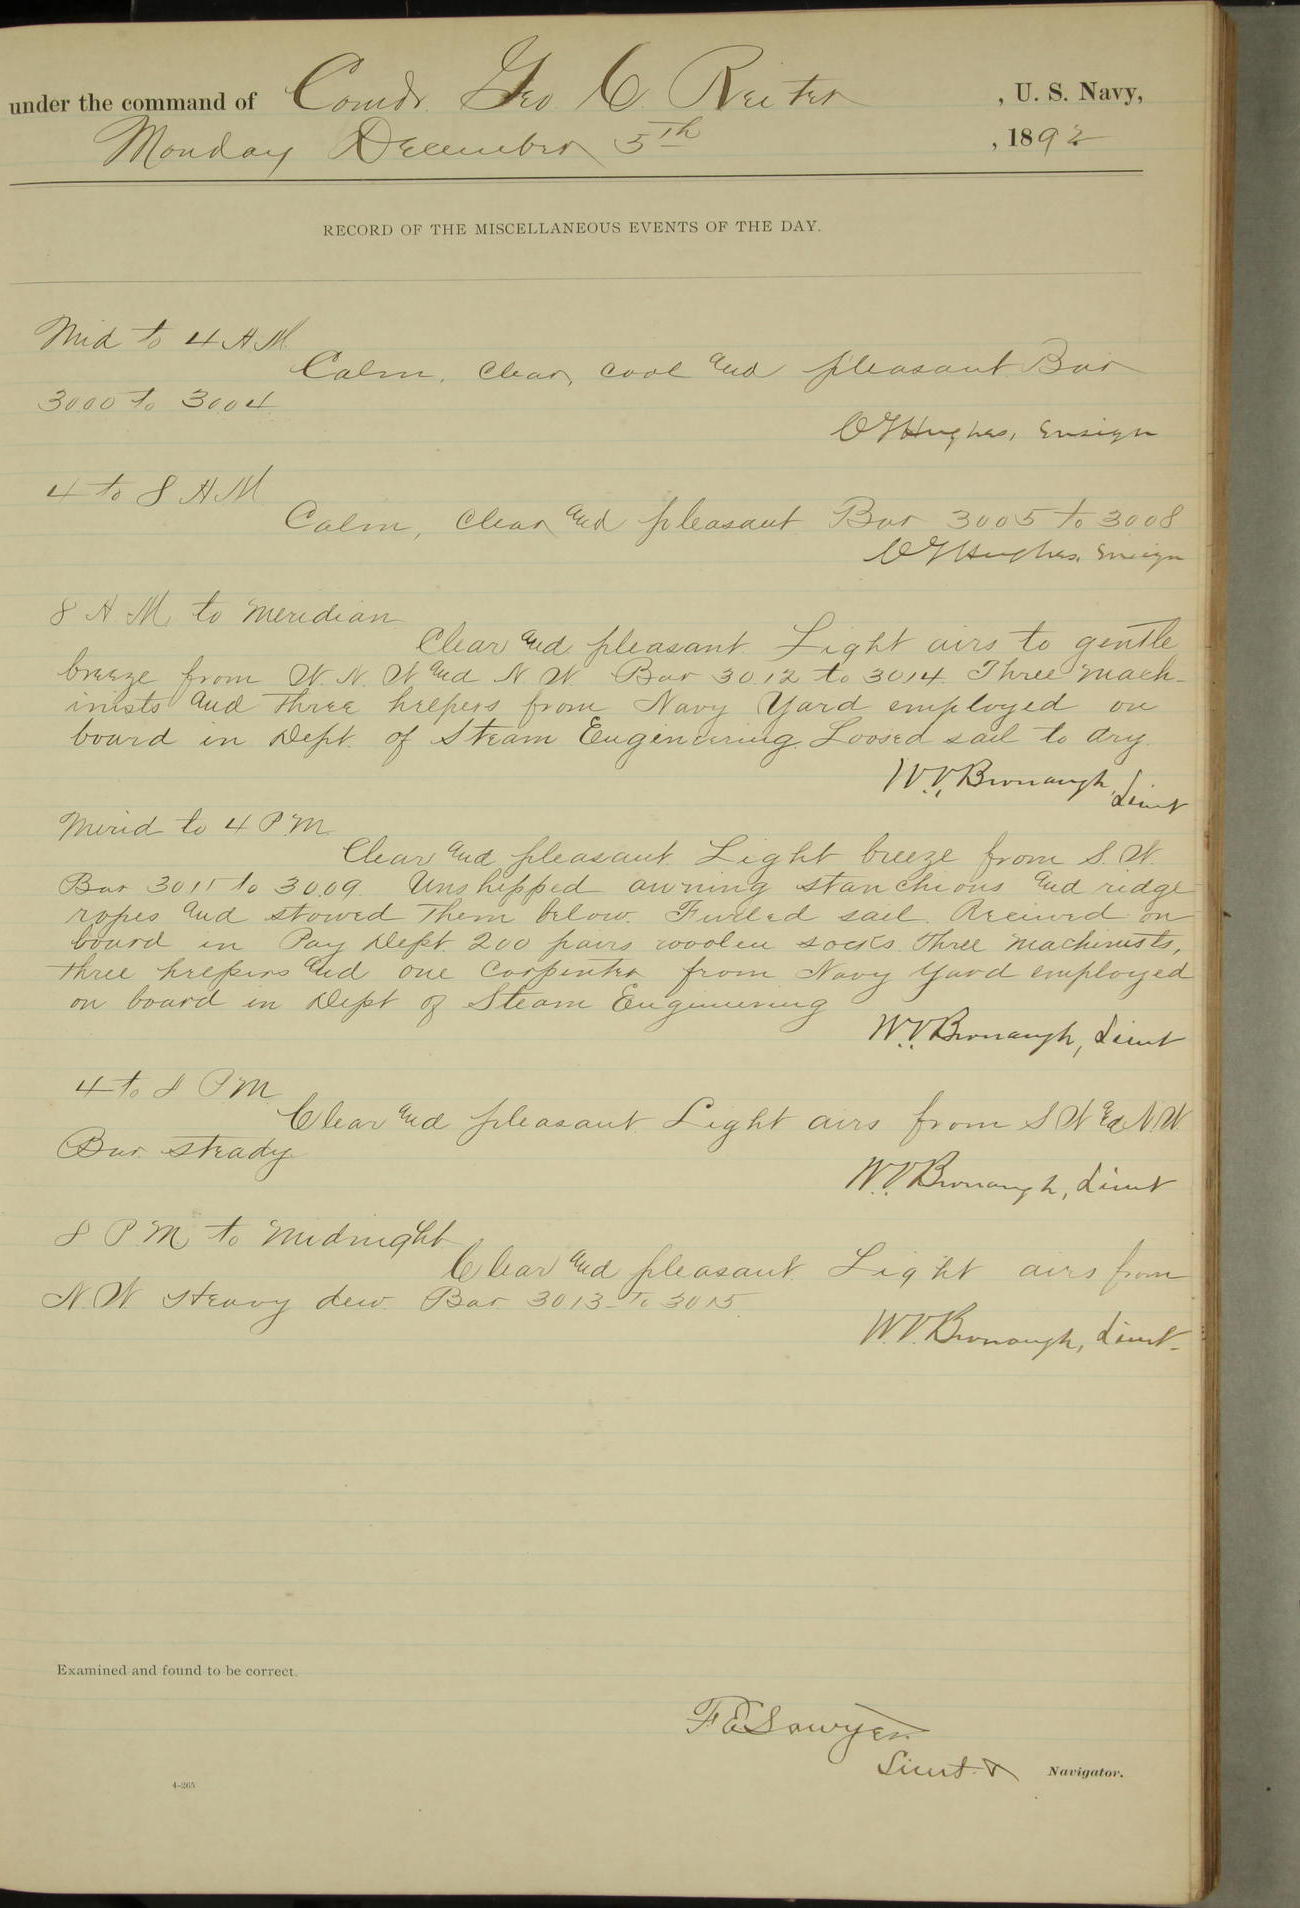 under the command of Comdr. Geo C. Reiter , U. S. Navy,
Monday December 5th , 1892
RECORD OF THE MISCELLANEOUS EVENTS OF THE DAY.
Mid to 4 A M
Calm, clear, cool and pleasant Bar
3000 to 3004
Hughes, Ensign
4 to 8 A M
Calm, clear and pleasant Bar 3005 to 3008
Hughes, Ensign
8 A. M. to Meridian
Clear and pleasant. Light airs to gentle
breeze from W. N. W and N. W. Bar 30.12 to 30.14. Three mach-
inists and three helpers from Navy Yard employed on
board in Dept. of Steam Engineering. Loosed sail to dry.
W.V. Bronaugh, Lieut
Merid to 4 P.M.
Clear and pleasant. Light breeze from S. W.
Bar 30.11 to 30.09. Unshipped awning stanchions and ridge
ropes and stowed them below. Furled sail. Received on
board in Pay Dept. 200 pairs woolen socks. Three machinists,
three helpers and one carpenter from Navy Yard employed
on board in Dept of Steam Engineering
W.V. Bronaugh, Lieut
4 to 8 P.M.
Clear and pleasant Light airs from S W and N.W.
Bar. steady
W.V. Bronaugh, Lieut
8 P.M. to Midnight
Clear and pleasant. Light airs from
N. W dew. Bar 30.13 to 30.15
W.V. Bronaugh, Lieut.
Examined and found to be correct.
F E Sawyer.
Lieut. & Navigator.
4-265